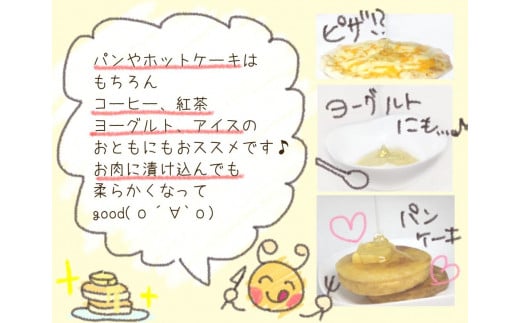 パンやホットケーキは
もちろん
コーヒー、紅茶
ヨーグルト、アイスの
おともにもおススメです♪
お肉に漬け込んでも
柔らかくなって
good(o´∀`o)
ピザ!?
ヨーグルト
にも…♪
パン
ケーキ